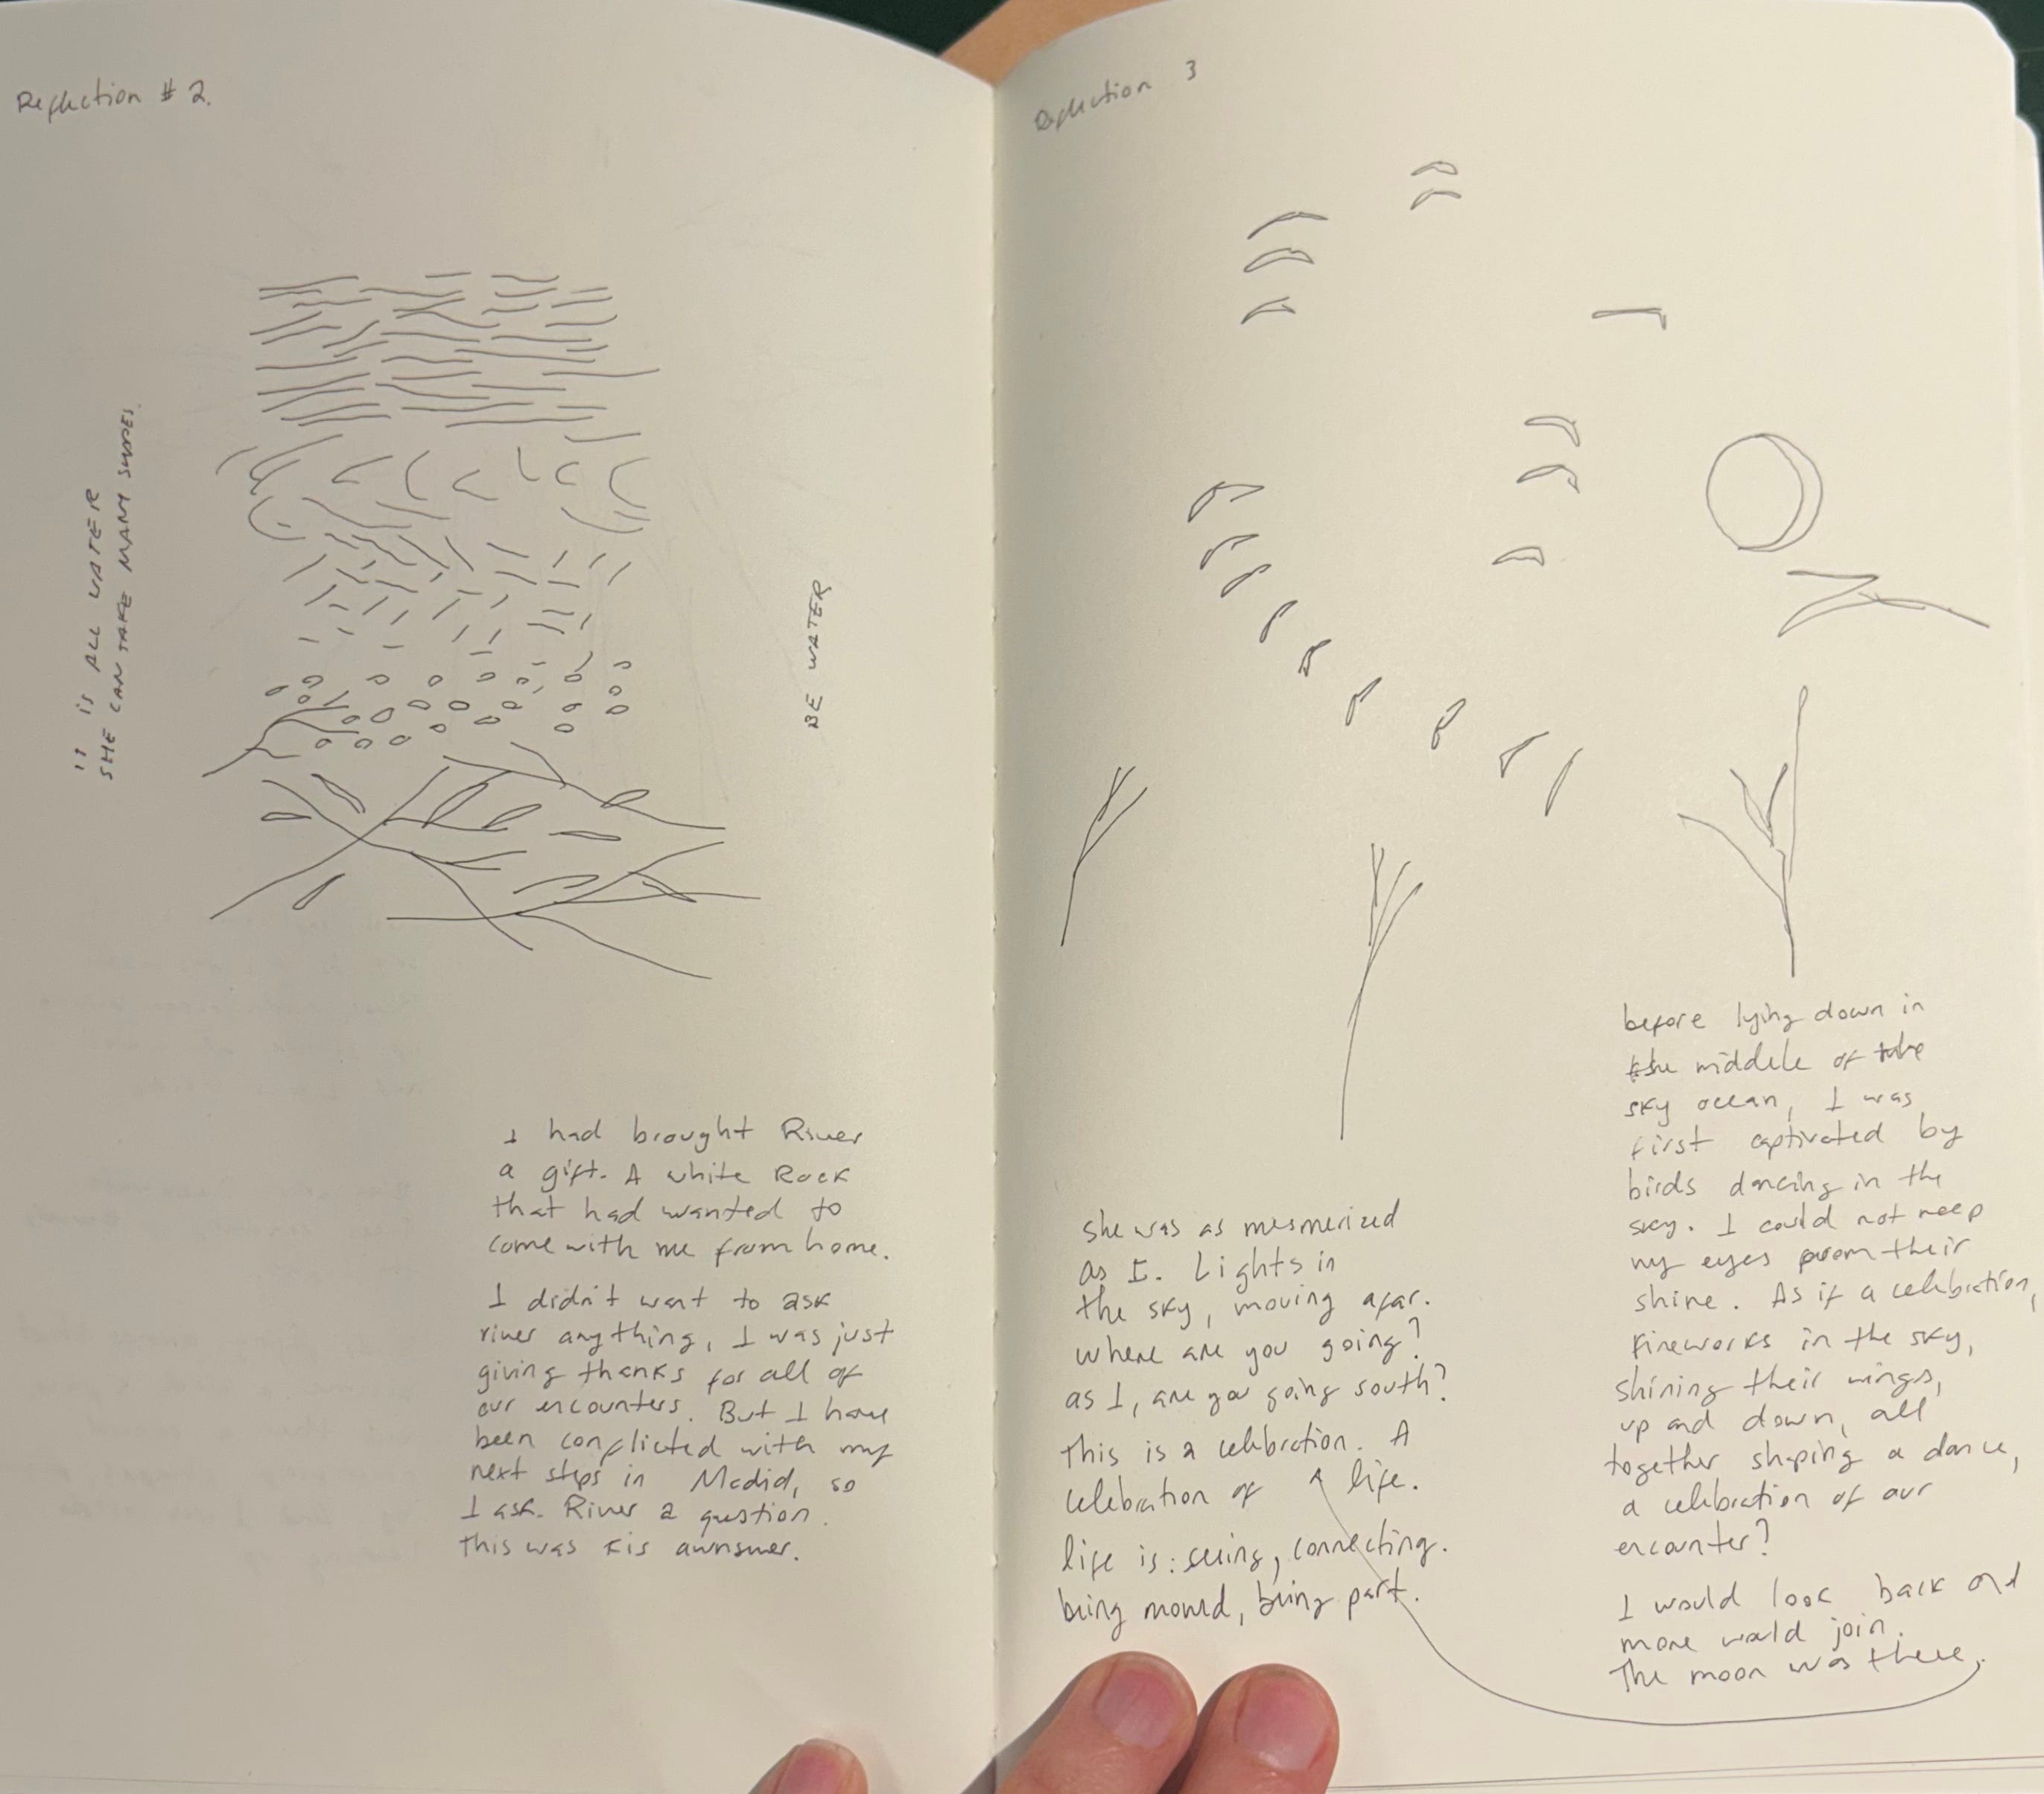 Reflection # 2.
IT IS ALL WATER
SHE CAN TAKE MANY SHAPES.
BE WATER
I had brought River
a gift. A white Rock
that had wanted to
come with me from home.
I didn't want to ask
river anything, I was just
giving thanks for all of
our encounters. But I have
been conflicted with my
next steps in Madid, so
I ask River a question.
This was his awnswer.
Reflection 3
before lying down in
the middele of the
sky ocean, I was
first captivated by
birds dancing in the
sky. I could not keep
my eyes from their
shine. As if a celebration,
fireworks in the sky,
shining their wings,
up and down, all
together shaping a dance,
a celebration of our
encounter?
I would look back and
more would join.
The moon was there,
she was as mesmerized
as I. Lights in
the sky, moving afar.
where are you going?
as I, are you going south?
This is a celebration. A
celebration of life.
life is: seeing, connecting.
being moved, being part.